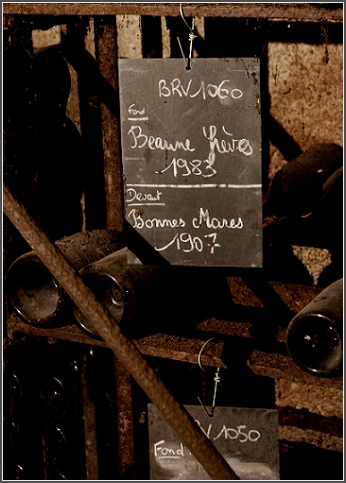 BRV 1060
Fond
Beaune Grèves
1983
Devant
Bonnes Mares
1907
V 1050
Fond